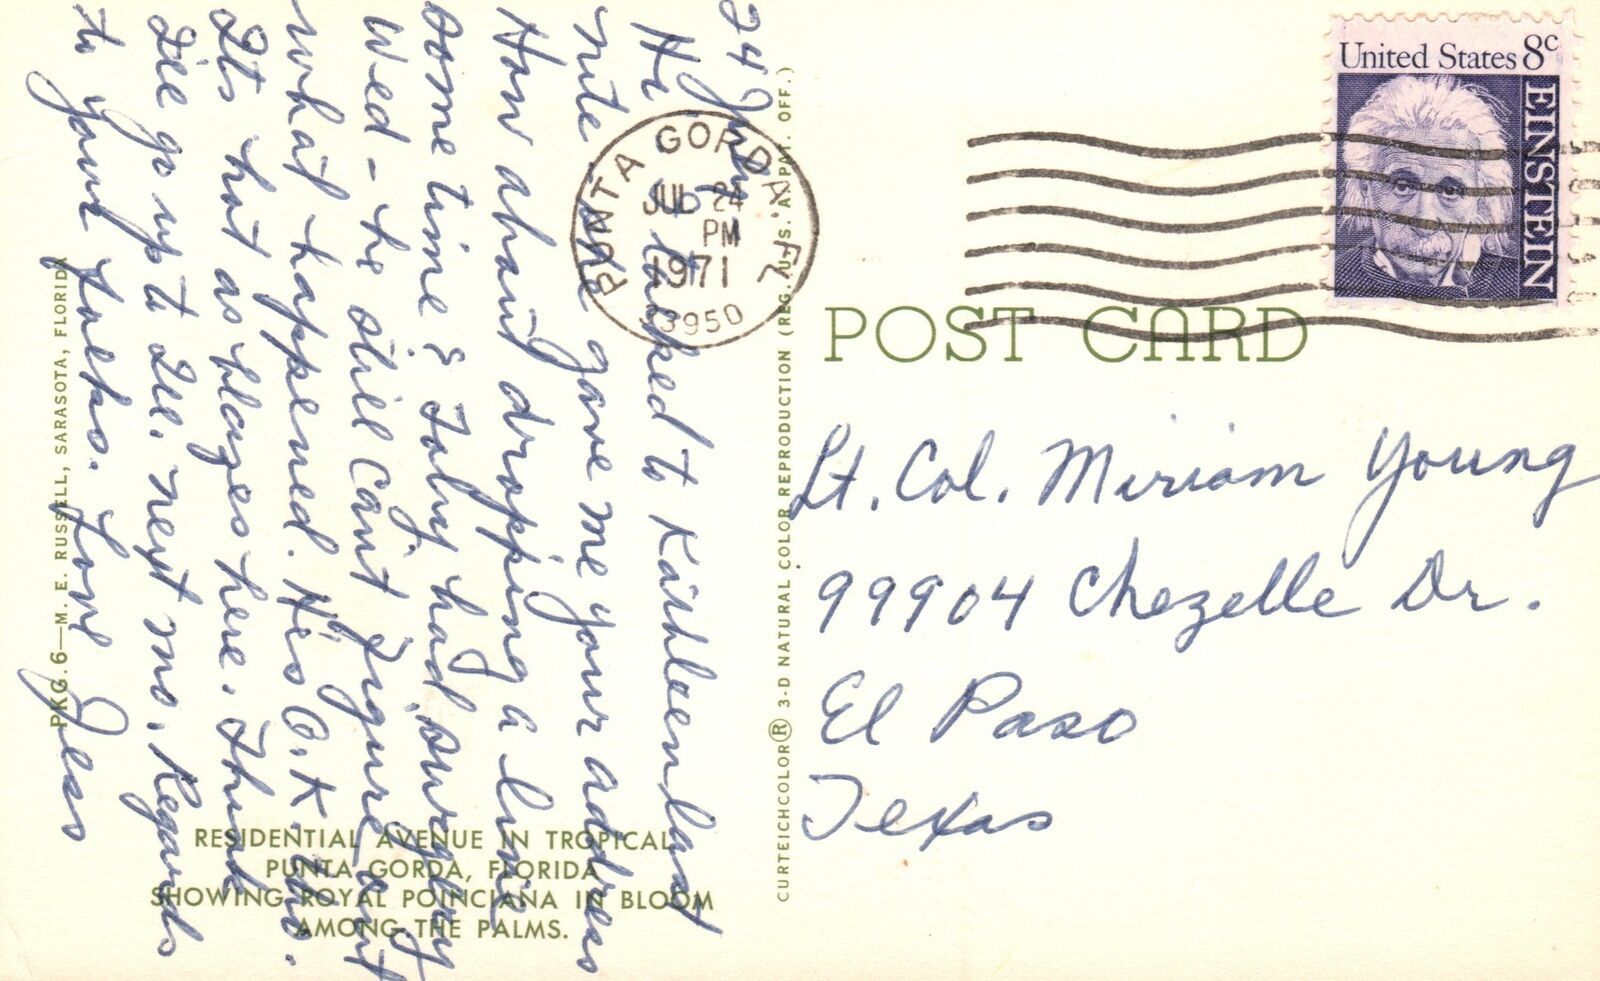 24 July
Hi I talked to Kathleen last
nite she gave me your address
How about dropping a line
some time & Toby had surgery
Wed - he still can't figure out
what happened. He's O.K. tho.
Its hot as blazes here. Think
I'll go up to Ill. next mo. Regards
to your folks. Love Jess
PUNTA GORDA FL
JUL 24
PM
1971
33950
United States 8c
EINSTEIN
POST CARD
Lt. Col. Miriam Young
99904 Chezelle Dr.
El Paso
Texas
PKG.6—M. E. RUSSELL, SARASOTA, FLORIDA
CURTEICHCOLOR® 3-D NATURAL COLOR REPRODUCTION (REG. U.S.A. PAT. OFF.)
RESIDENTIAL AVENUE IN TROPICAL
PUNTA GORDA, FLORIDA
SHOWING ROYAL POINCIANA IN BLOOM
AMONG THE PALMS.